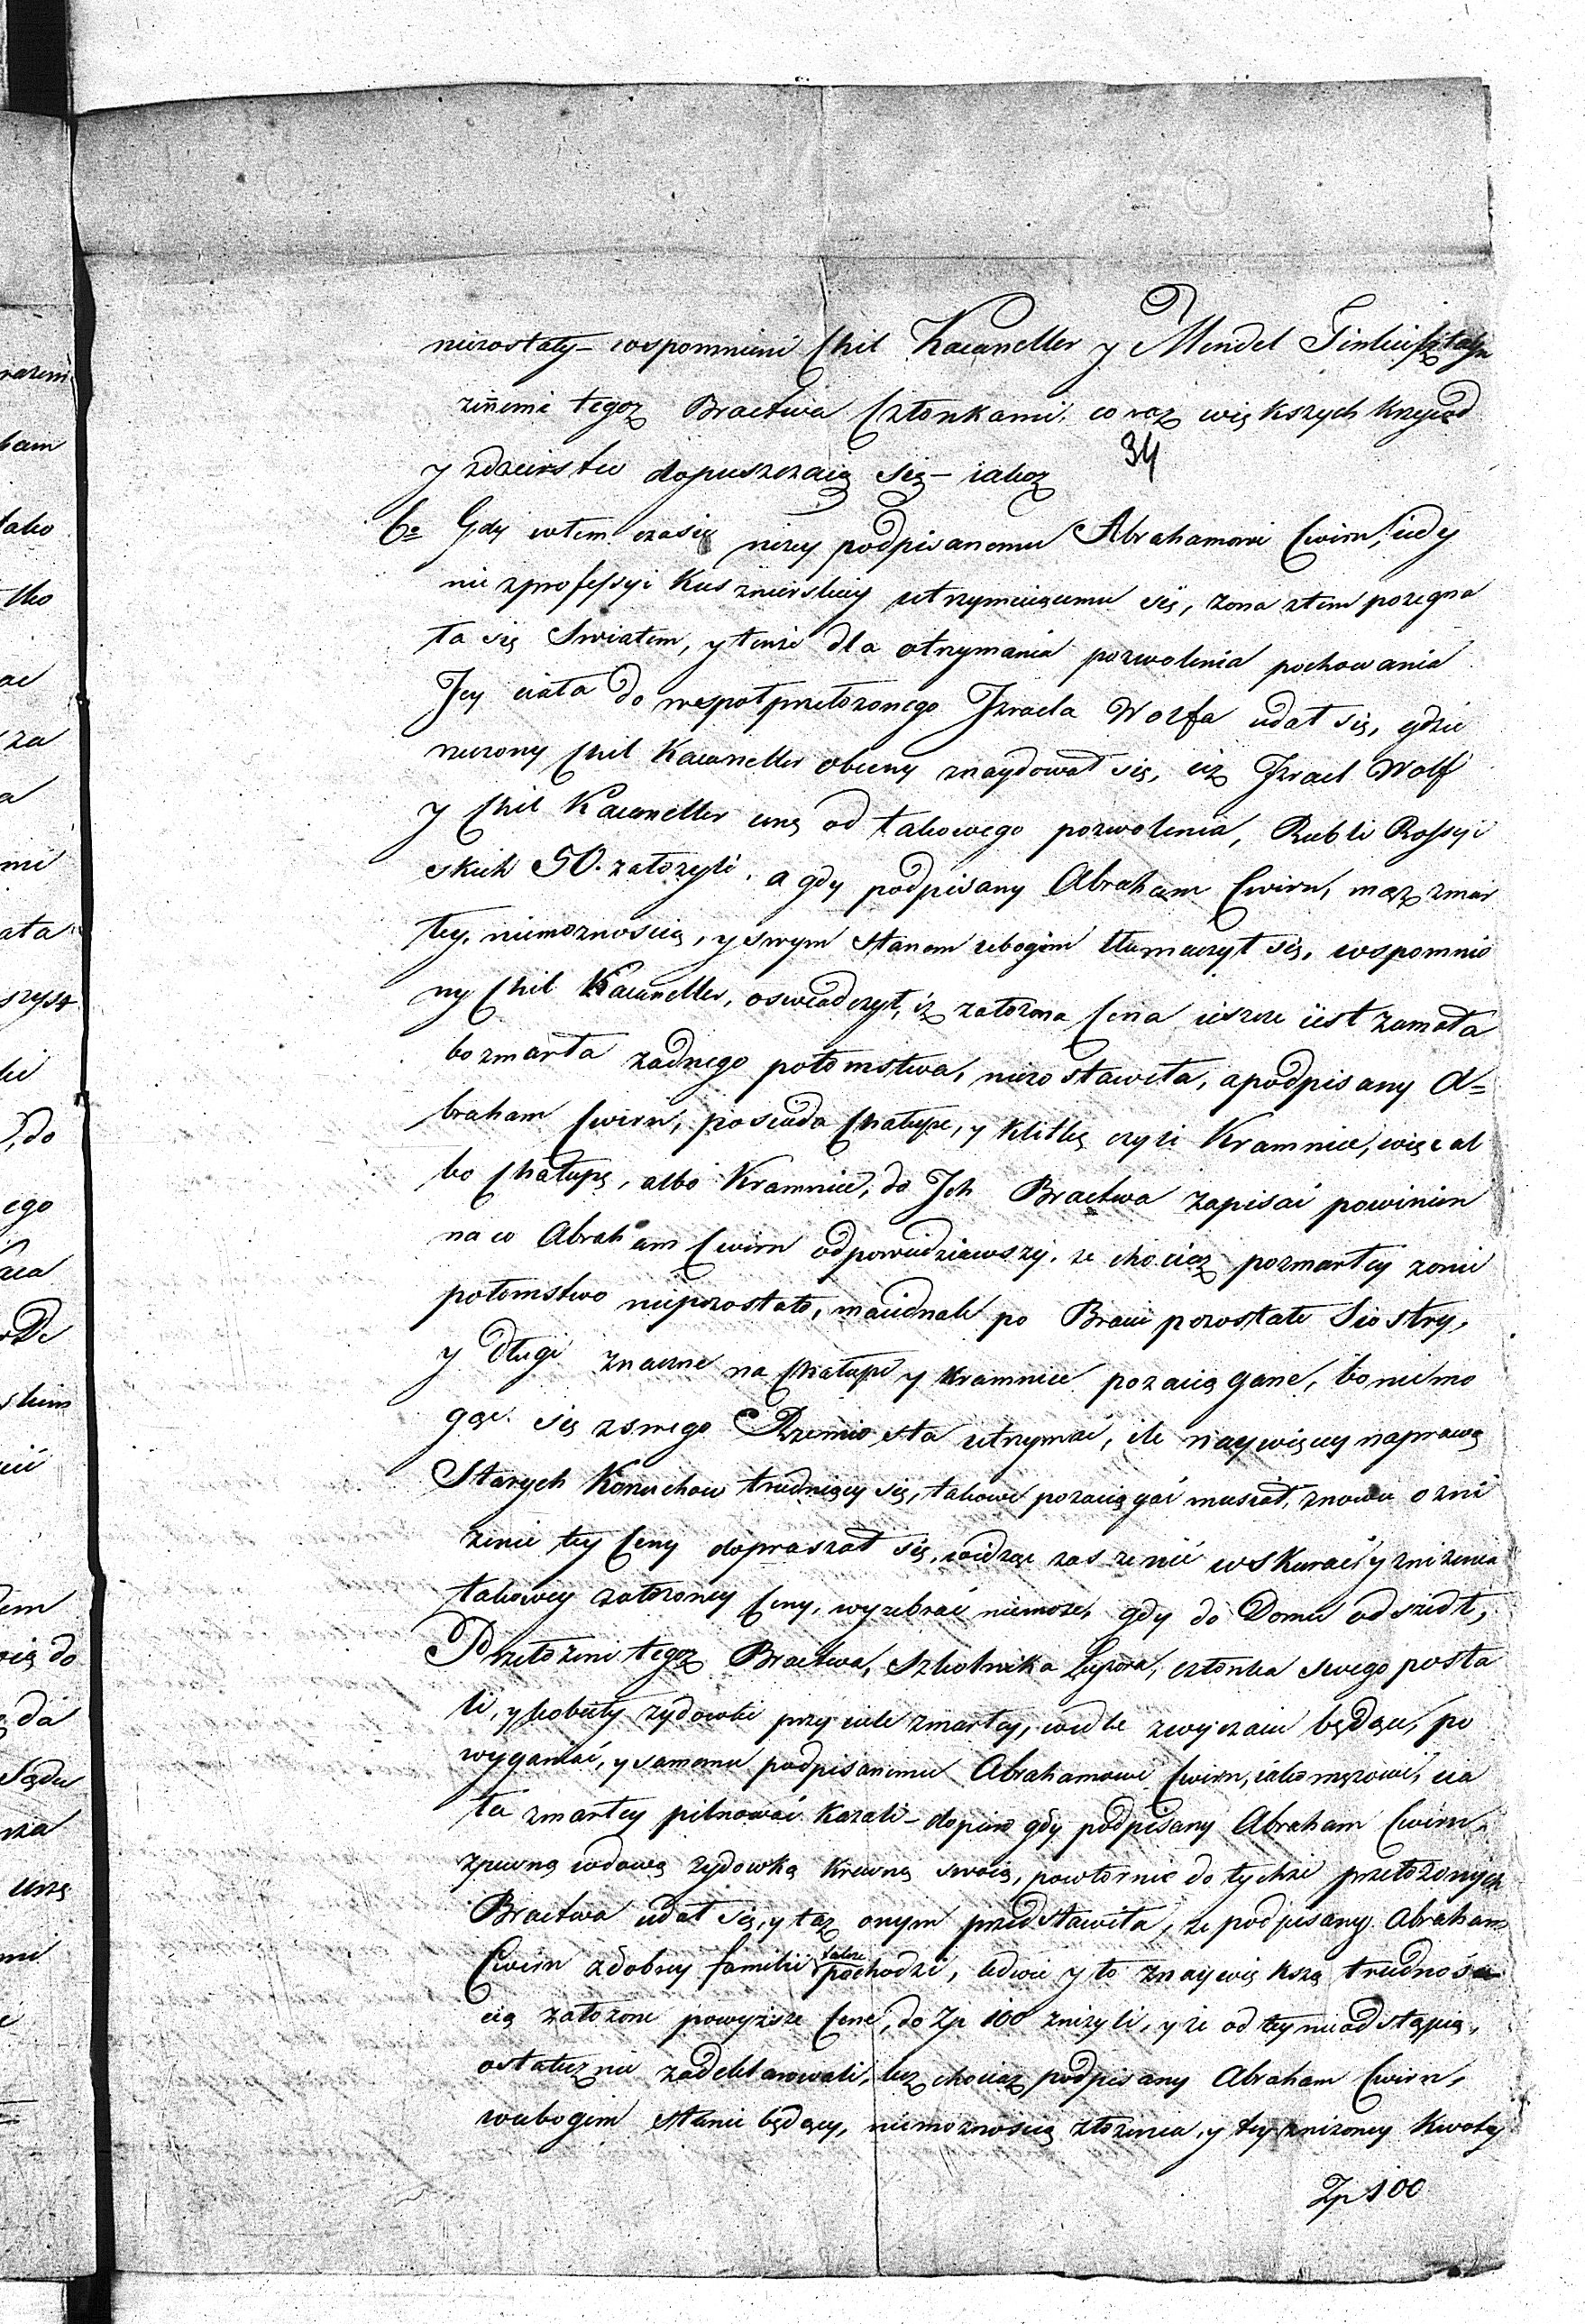 niezostały – wspomnieni Chil Kacaneller y Mendel
zinnemi tegoz Bractwa Członkami, coraz większych krzywd
34
y zdzierstw dopuszczaią się – iakoż
6o Gdy wtem czasie niżey podpisanemu Abrahamowi Cwirn, iedy
nie zprofessyi Kusznierskiey utrzymuiącemu się, żona ztem pożegna
ła się Swiatem, y tenże dla otrzymania pozwolenia pochowania
Jey ciała do współprzełożonego Izraela Wolfa udał się, gdzie
rzeczony Chil Kacaneller obecny znaydował się, ciż Izrael Wolf
y Chil Kacaneller cenę od takowego pozwolenia, Rubli Rossyi
skich 50. założyli. a gdy podpisany Abraham Cwirn, mąż zmar
łey, niemożnością, y swym stanem ubogim tłumaczył się, wspomnio
ny Chil Kacaneller, oswiadczył, iż założona Cena ieszcze iest zamała
bo zmarła żadnego potomstwa, niezostawiła, a podpisany A=
braham Cwirn, posiada Chałupe, y klitkę czyli Kramnice, więc al
bo Chałupę, albo Kramnice, do Jch Bractwa zapisać powinien
na co Abraham Cwirn odpowiedziawszy, że chociaż pozmarłey żonie
potomstwo niepozostało, ma iednak po Braci pozostałe Siostry,
y długi znaczne na Chałupe y Kramnice pozaciągane, bo niemo
gąc się zswego Rzemiosła utrzymać, ile naywięcey naprawą
Starych Kożuchow trudniący się, takowe pozaciągać musiał, znowu o zni
żenie tey Ceny dopraszał się, widząc zas że nic wskurać y zniżenia
takowey założoney Ceny, wyżebrać niemoże, gdy do Domu odszedł,
Przełożeni tegoż Bractwa, Szkolnika członka swego posła
li, y kobiety żydowki przy ciele zmarłey, wedle zwyczaiu będące, po
wyganiać, y samemu podpisanemu Abrahamowi Cwirn, iako mężowi, cia
ła zmarłey pilnować kazali – dopiero gdy podpisany Abraham Cwirn,
zpewną wdową żydowką krewną swoią, powtórnie do tychże przełożonych
Bractwa udał się, y taż onym przedstawiła, że podpisany Abraham
Cwirn zdobrey familii także pochodzi, ledwie y to znaywiększą trudnoś
cią założone powyższe Cene, do Zp 100 zniżyli, y że od tey nieodstąpią,
ostatecznie zadeklarowali, lecz chociaż podpisany Abraham Cwirn,
wubogim stanie będący, niemożnością złożenia, y tey zniżoney kwoty
Zp 100